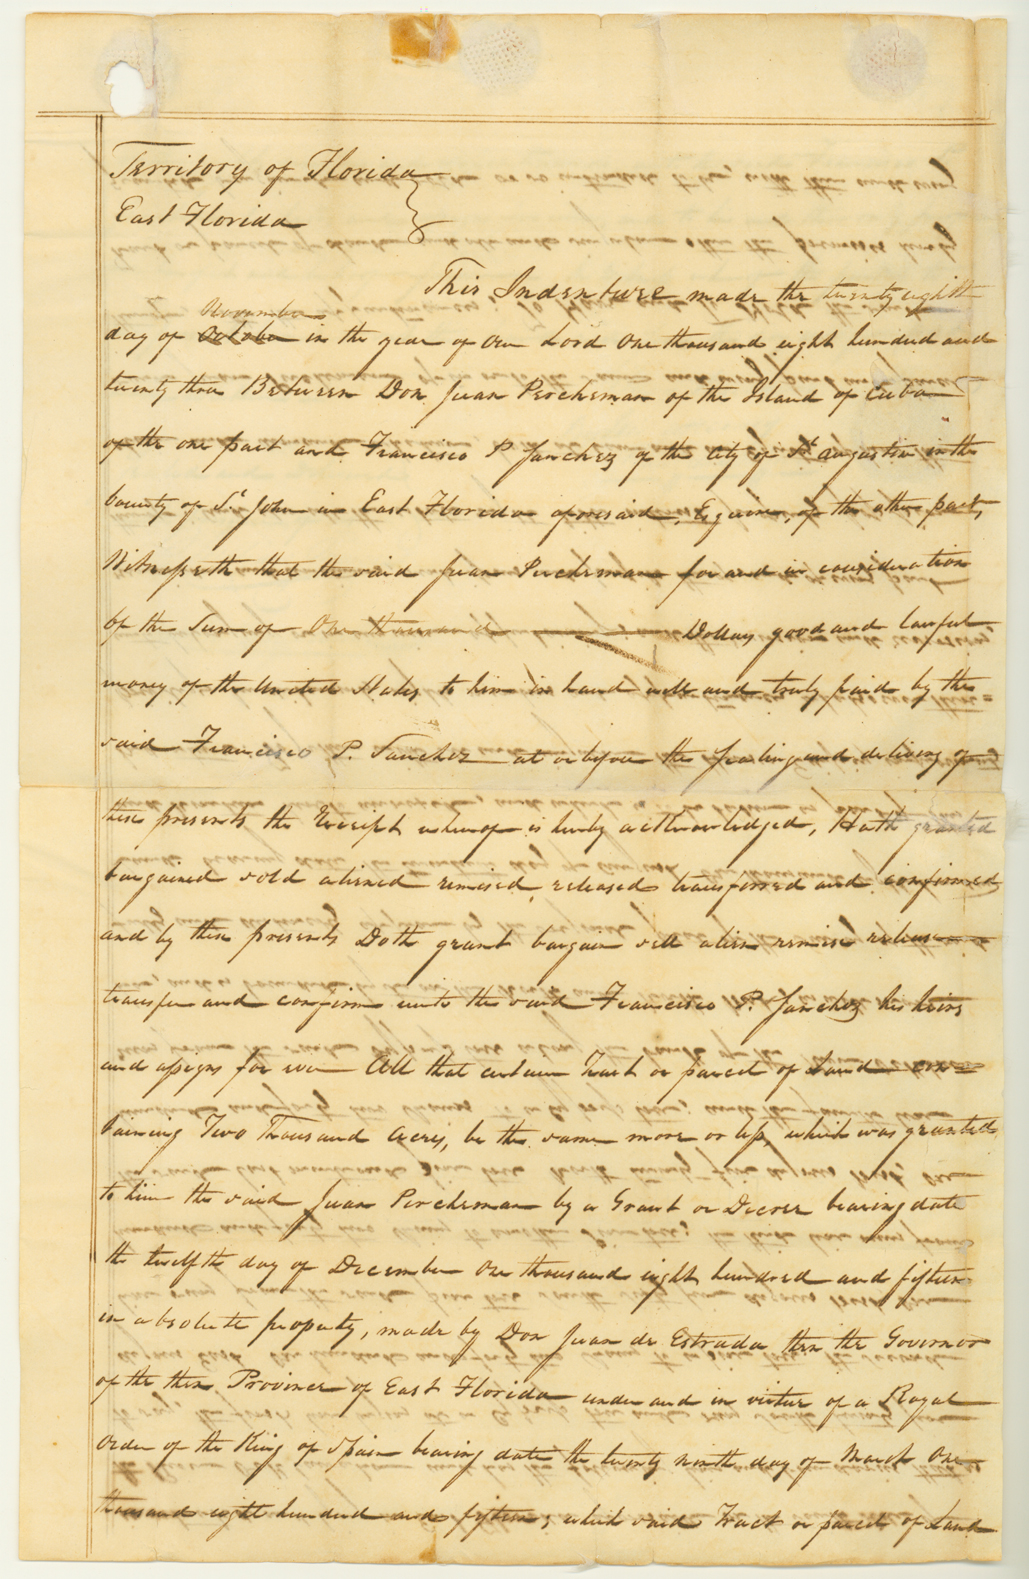 Territory of Florida
East Florida
This Indenture made the twenty eighth
November
day of October in the year of Our Lord One thousand eight hundred and
twenty three Between Don Juan Percheman of the Island of Cuba
of the one part and Francisco P. Sanchez of the City of St. Augustin in the
County of St. John in East Florida aforesaid, Esquire, of the other part,
Witnesseth that the said Juan Percheman for and in consideration
of the Sum of One thousand Dollars good and lawful
money of the United States to him in hand well and truly paid by the
said Francisco P. Sanchez at or before the sealing and delivery of
these presents the Receipt whereof is hereby acknowledged, Hath granted
bargained sold aliened remised released transferred and confirmed
and by these presents Doth grant bargain sell alien remise release
transfer and confirm unto the said Francisco P. Sanchez his heirs
and assigns for ever All that certain Tract or parcel of Land con=
taining Two Thousand Acres, be the same more or less, which was granted
to him the said Juan Percheman by a Grant or Decree bearing date
the twelfth day of December One thousand eight hundred and fifteen
in absolute property, made by Don Juan de Estrada then the Governor
of the then Province of East Florida under and in virtue of a Royal
Order of the King of Spain bearing date the twenty ninth day of March One
thousand eight hundred and fifteen; which said Tract or parcel of Land